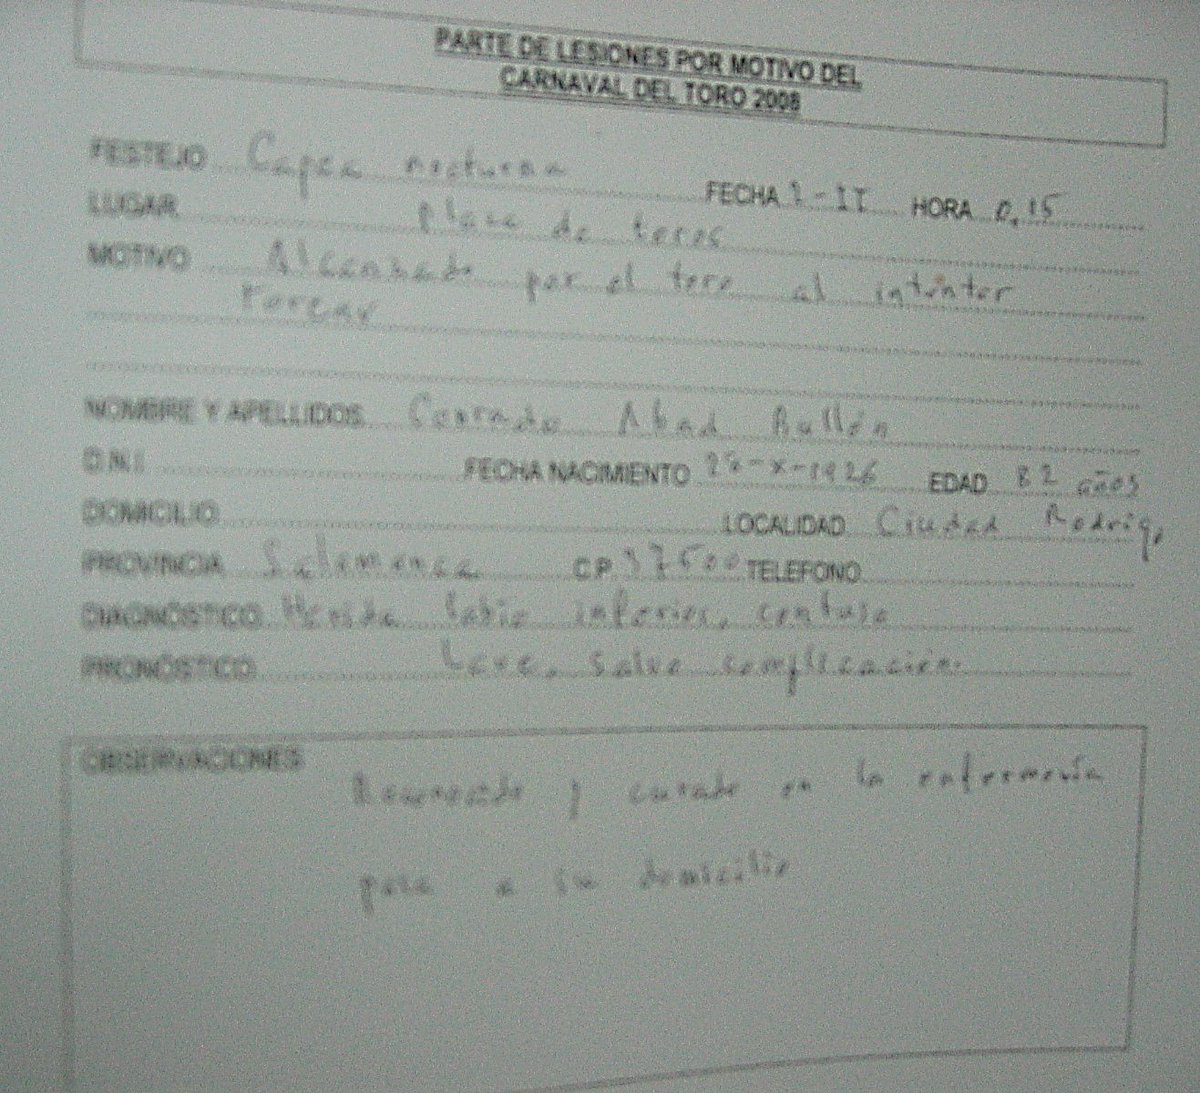 PARTE DE LESIONES POR MOTIVO DEL
CARNAVAL DEL TORO 2008
FESTEJO Capea nocturna FECHA 1-II HORA 0,15
LUGAR Plaza de toros
MOTIVO Alcanzado por el toro al intentar
Torear
NOMBRE Y APELLIDOS Conrado Abad Bullón
D.N.I. FECHA NACIMIENTO -X-1926 EDAD 82 años
DOMICILIO LOCALIDAD Ciudad Rodrigo
PROVINCIA Salamanca C.P. 37500 TELEFONO
DIAGNÓSTICO Herida labio inferior, contuso
PRONÓSTICO Leve, salvo complicación.
OBSERVACIONES
Reconocido y curado en la enfermería
pasa a su domicilio